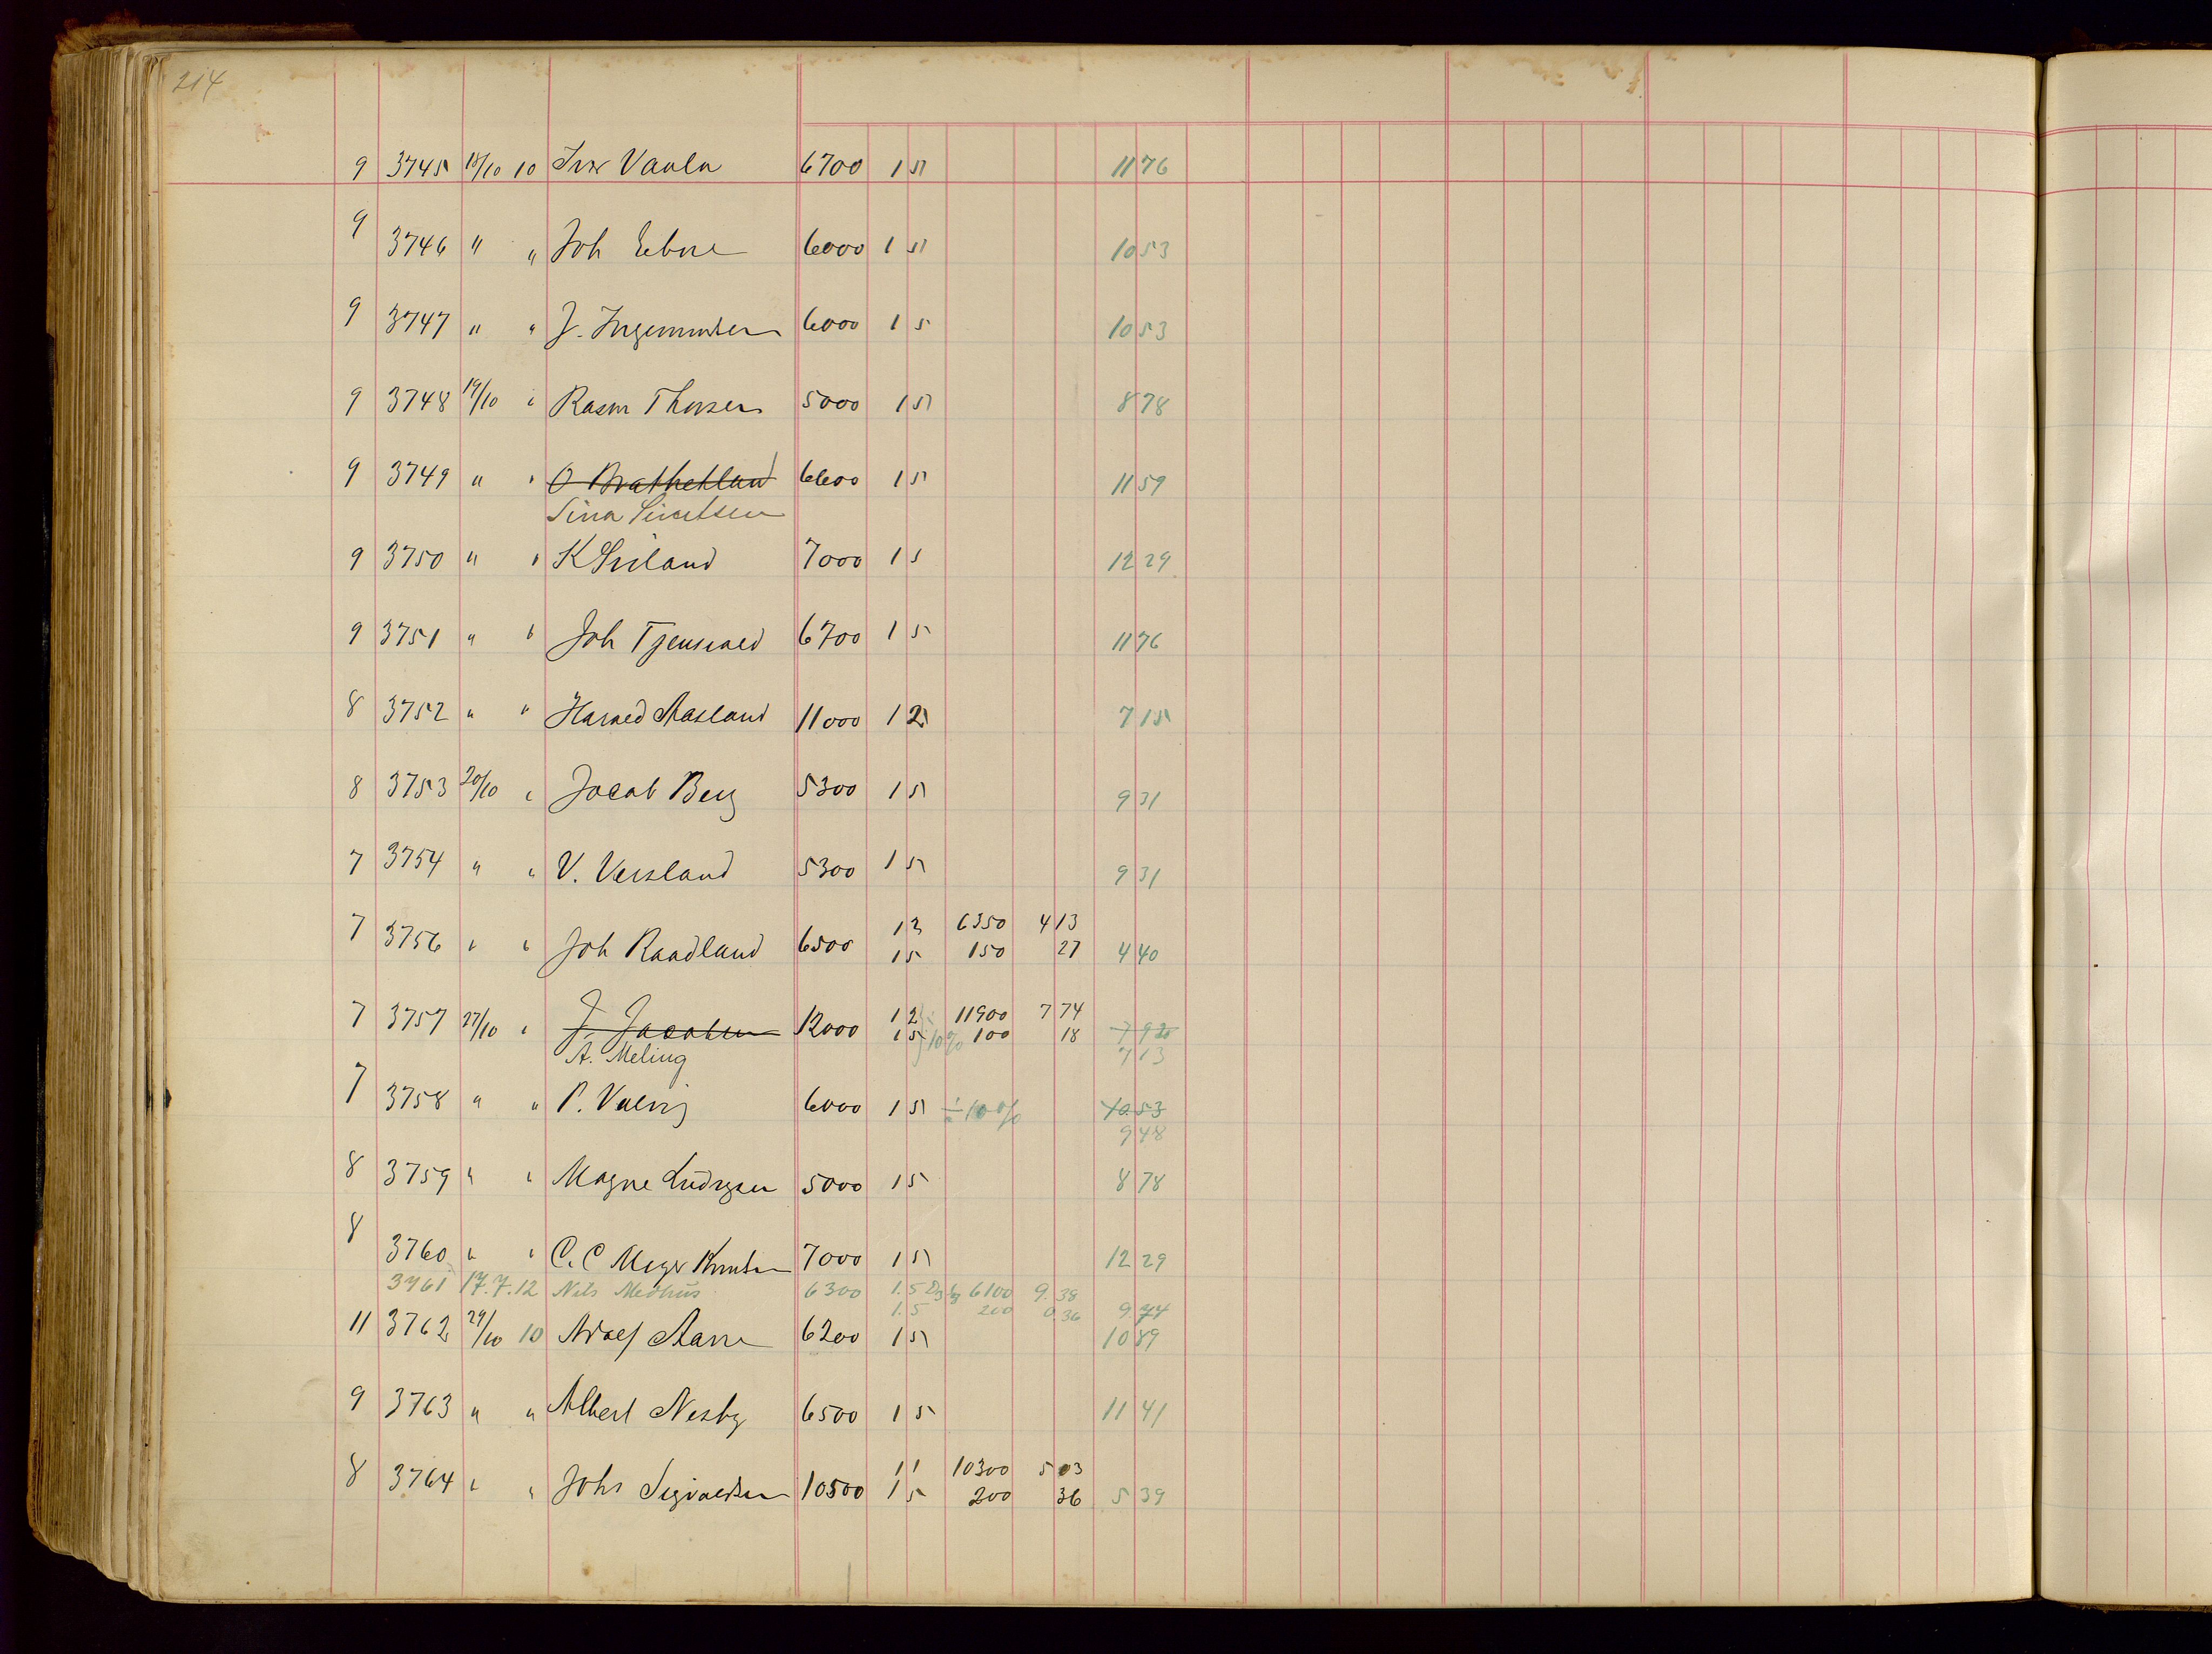 214
9 3745 18/10 10 Ivar Vaula 6700 1 5 11 76
9 3746 " " Joh 6000 1 5 10 53
9 3747 " " J. Ingemundsen 6000 1 5 10 53
9 3748 19/10 " Rasm Thorsen 5000 1 5 8 78
9 3749 " " O Brathetland 6600 1 5 11 59
Sina Sivertsen
9 3750 " " K 7000 1 5 12 29
9 3751 " " Joh Tjensvold 6700 1 5 11 76
8 3752 " " Harald Aasland 11000 1 2 7 15
8 3753 20/10 " Jacob Berg 5300 1 5 9 31
7 3754 " " V. Versland 5300 1 5 9 31
7 3756 " " Joh Raadland 6500 1 2 6350 4 13
1 5 150 27 4 40
7 3757 27/10 " J. Jacobsen 12000 1 2 11900 7 74
1 5 ÷ 10% 100 18 7 92
A. Meling 7 13
7 3758 " " P. Valvig 6000 1 5 ÷ 10% 10 53
9 48
8 3759 " " Magne Ludvigsen 5000 1 5 8 78
8 3760 " " C. C Meyer Knutsen 7000 1 5 12 29
3761 17.7.12 Nils Medhus 6300 1.5 6100 9.38
1.5 200 0.36 9.74
11 3762 29/10 10 Adolf Aarre 6200 1 5 10 89
9 3763 " " Albert Nesby 6500 1 5 11 41
8 3764 " " Johs Sigvaldsen 10500 1 1 10300 5 03
1 5 200 36 5 39